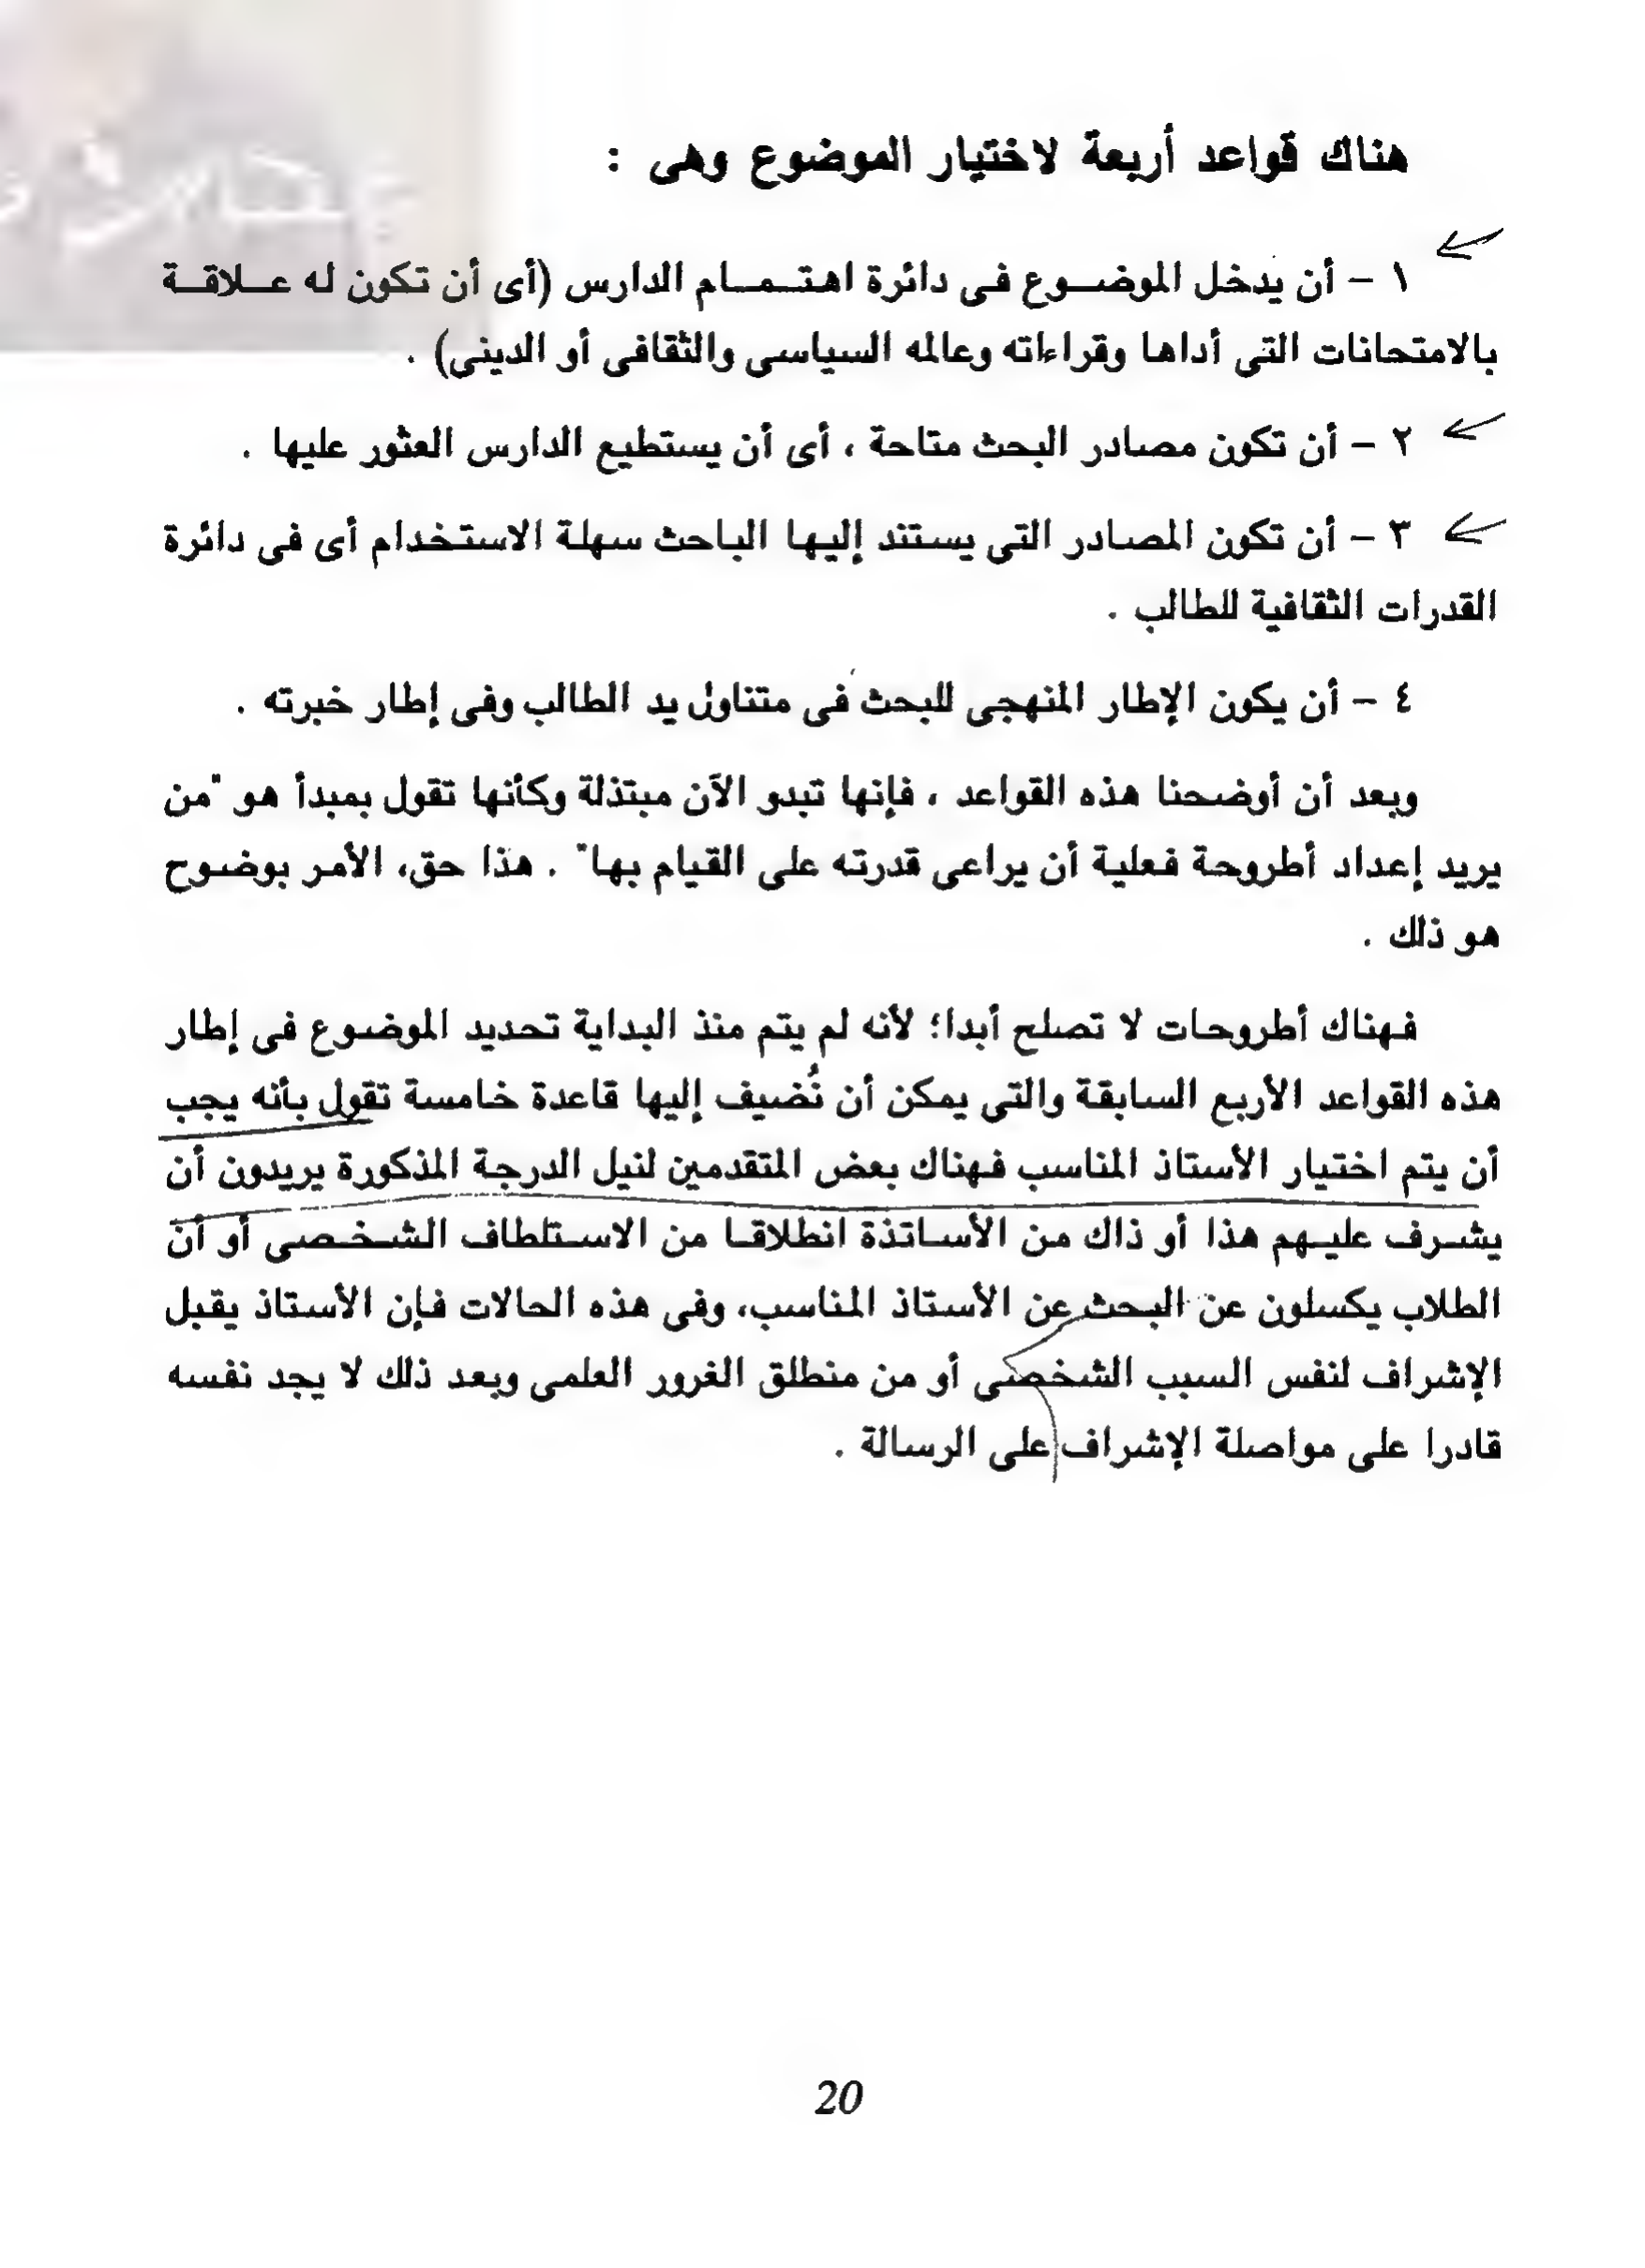 هناك قواعد أربعة لاختيار الموضوع وهى :
١ – أن يدخل الموضوع فى دائرة اهتمام الدارس (أى أن تكون له علاقة
بالامتحانات التى أداها وقراءاته وعالمه السياسى والثقافى أو الدينى) .
٢ – أن تكون مصادر البحث متاحة ، أى أن يستطيع الدارس العثور عليها .
٣ – أن تكون المصادر التى يستند إليها الباحث سهلة الاستخدام أى فى دائرة
القدرات الثقافية للطالب .
٤ – أن يكون الإطار المنهجى للبحث فى متناول يد الطالب وفى إطار خبرته .
وبعد أن أوضحنا هذه القواعد ، فإنها تبدو الآن مبتذلة وكأنها تقول بمبدأ هو "من
يريد إعداد أطروحة فعلية أن يراعى قدرته على القيام بها" . هذا حق، الأمر بوضوح
هو ذلك .
فهناك أطروحات لا تصلح أبدا؛ لأنه لم يتم منذ البداية تحديد الموضوع فى إطار
هذه القواعد الأربع السابقة والتى يمكن أن نُضيف إليها قاعدة خامسة تقول بأنه يجب
أن يتم اختيار الأستاذ المناسب فهناك بعض المتقدمين لنيل الدرجة المذكورة يريدون أن
يشرف عليهم هذا أو ذاك من الأساتذة انطلاقا من الاستلطاف الشخصى أو أن
الطلاب يكسلون عن البحث عن الأستاذ المناسب، وفى هذه الحالات فإن الأستاذ يقبل
الإشراف لنفس السبب الشخصى أو من منطلق الغرور العلمى وبعد ذلك لا يجد نفسه
قادرا على مواصلة الإشراف على الرسالة .
20